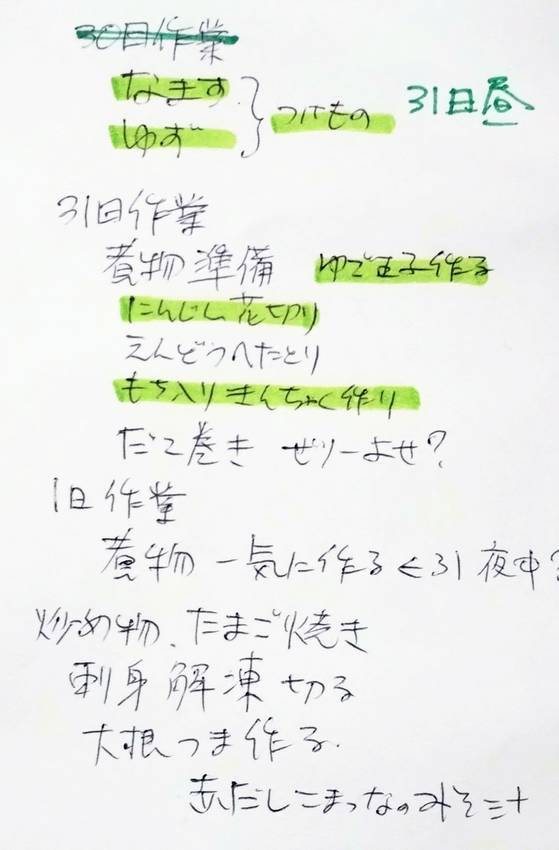 30日作業
なます
ゆず } つけもの 31日昼
31日作業
煮物準備 ゆで玉子作る
にんじん花切り
えんどうへたとり
もち入りきんちゃく作り
だて巻き ゼリーよせ?
1日作業
煮物 一気に作る ← 31夜中?
炒め物、たまご焼き
刺身解凍切る
大根つま作る.
だしこまつなのみそ汁